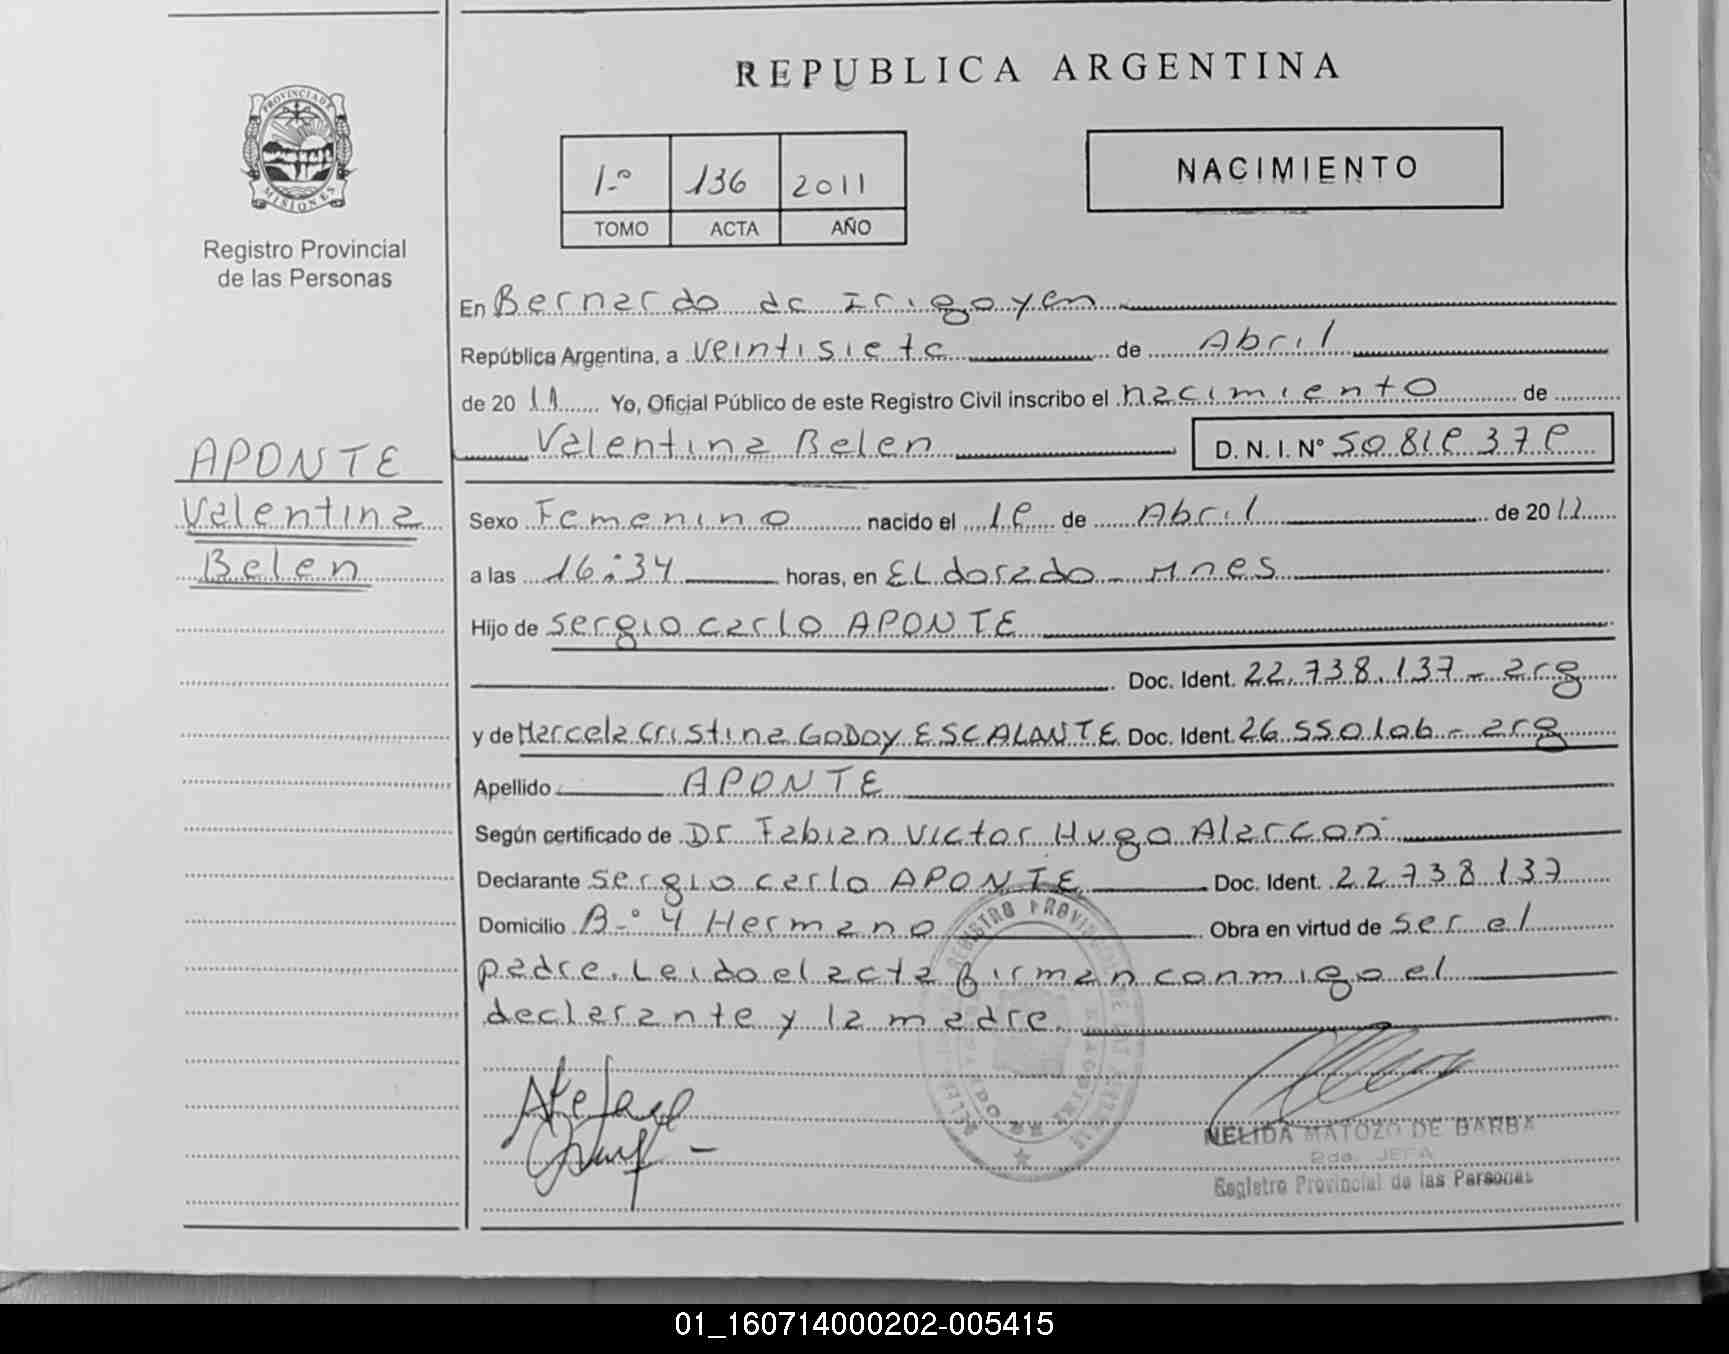 REPUBLICA ARGENTINA
PROVINCIA DE MISIONES
Registro Provincial
de las Personas
1º 136 2011
TOMO ACTA AÑO
NACIMIENTO
En Bernardo de Irigoyen
República Argentina, a veintisiete de Abril
de 20 11 Yo, Oficial Público de este Registro Civil inscribo el nacimiento de
Valentina Belen D. N. I. Nº
APONTE
Valentina
Belen
Sexo Femenino nacido el de Abril de 20 11
a las 16:34 horas, en ELdorado - Mnes
Hijo de Sergio carlo APONTE
Doc. Ident. 22.738.137 - arg
y de Marcela Cristina GODOY ESCALANTE Doc. Ident. 26.550.106 - arg
Apellido APONTE
Según certificado de Dr. Fabian Victor Hugo Alarcon
Declarante Sergio carlo APONTE Doc. Ident. 22.738.137
Domicilio B.º 4 Hermano Obra en virtud de ser el
padre. Leido el acta firman conmigo el
declarante y la madre.
NELIDA MATOZO DE BARBA
2da. JEFA
Registro Provincial de las Personas
01_160714000202-005415